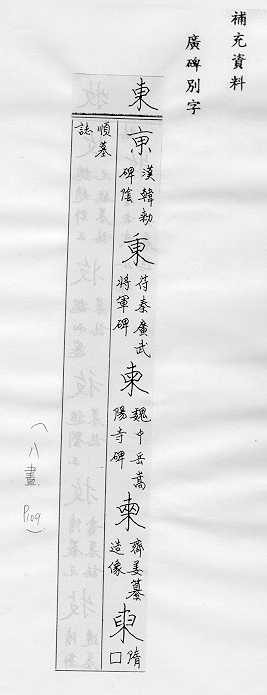 補充資料
廣碑別字
東
漢韓勑
碑陰
苻秦廣武
將軍碑
柬
魏中岳嵩
陽寺碑
齊姜纂
造像
隋
□
愼墓
誌
（八畫 P109）